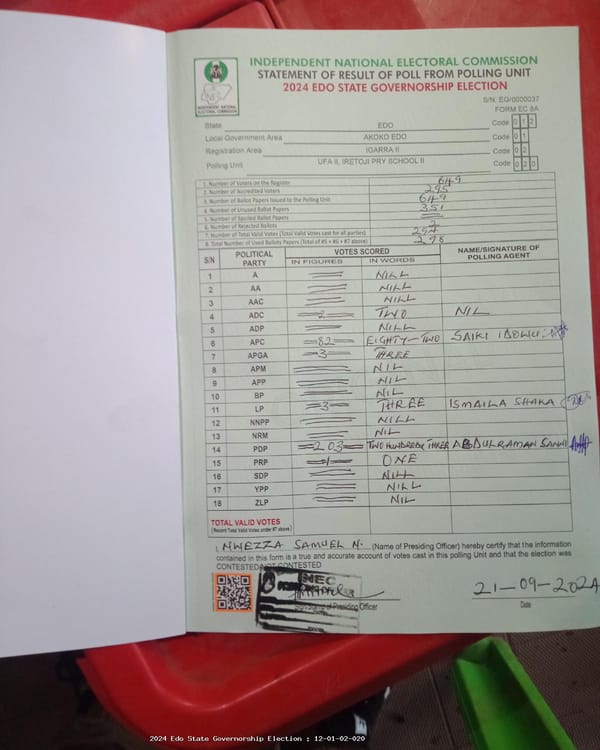 INDEPENDENT NATIONAL ELECTORAL COMMISSION
STATEMENT OF RESULT OF POLL FROM POLLING UNIT
2024 EDO STATE GOVERNORSHIP ELECTION
INDEPENDENT NATIONAL ELECTORAL COMMISSION
S/N: EG/0000037
FORM EC 8A
State EDO Code 0 1 2
Local Government Area AKOKO EDO Code 0 1
Registration Area IGARRA II Code 0 2
Polling Unit UFA II, IRETOJI PRY SCHOOL II Code 0 2 0
1. Number of Voters on the Register 649
2. Number of Accredited Voters 295
3. Number of Ballot Papers Issued to the Polling Unit 649
4. Number of Unused Ballot Papers 351
5. Number of Spoiled Ballot Papers
6. Number of Rejected Ballots
7. Number of Total Valid Votes (Total Valid Votes cast for all parties) 294
8. Total Number of Used Ballots Papers (Total of #5 + #6 + #7 above) 298
S/N POLITICAL PARTY VOTES SCORED NAME/SIGNATURE OF POLLING AGENT
IN FIGURES IN WORDS
1 A NILL
2 AA NILL
3 AAC NILL
4 ADC 2 TWO NIL
5 ADP NILL
6 APC 82 EIGHTY-TWO SAIKI IDOWU
7 APGA 3 THREE
8 APM NIL
9 APP NIL
10 BP NIL
11 LP 3 THREE ISMAILA SHAKA
12 NNPP NILL
13 NRM NIL
14 PDP 203 TWO HUNDRED THREE ABDULRAMAN SANNI
15 PRP 1 ONE
16 SDP NILL
17 YPP NILL
18 ZLP NIL
TOTAL VALID VOTES
(Record Total Valid Votes under #7 above)
I, NWEZZA SAMUEL N. (Name of Presiding Officer) hereby certify that the information
contained in this form is a true and accurate account of votes cast in this polling Unit and that the election was
CONTESTED/NOT CONTESTED
INEC
of Presiding Officer
21-09-2024
Date
2024 Edo State Governorship Election : 12-01-02-020